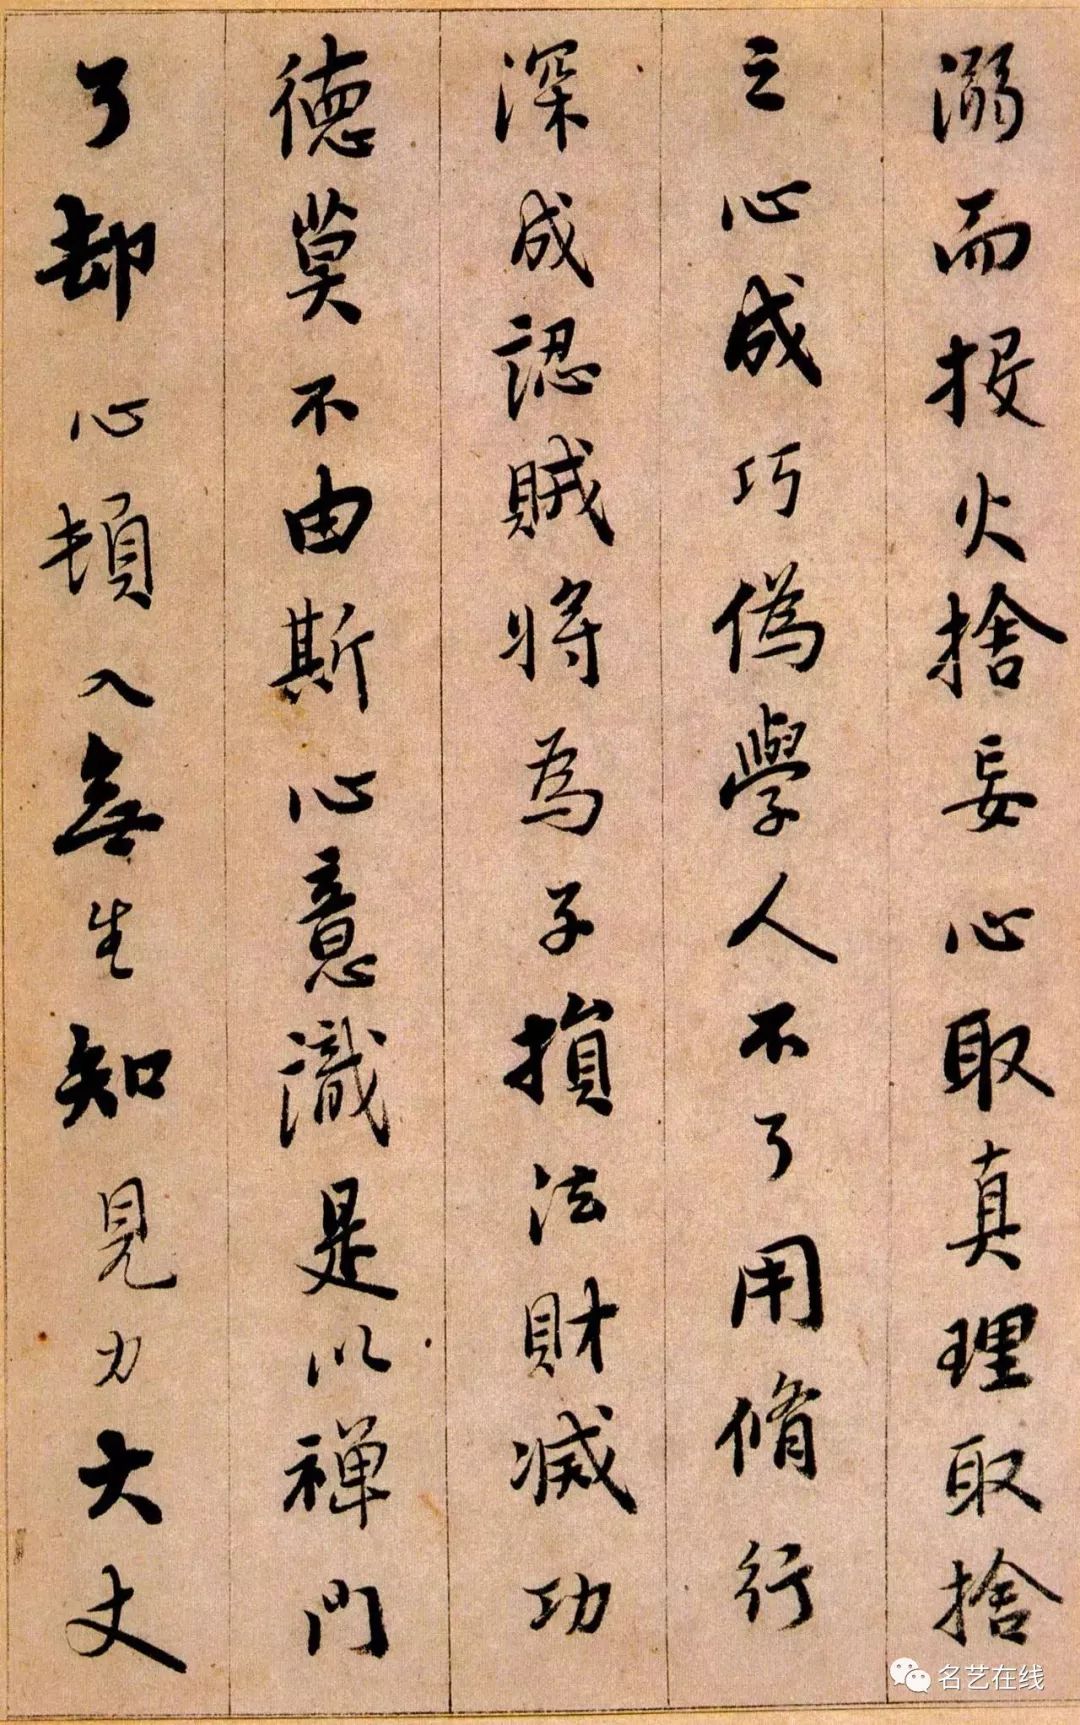 溺而投火捨妄心取真理取捨
之心成巧偽學人不了用脩行
深成認賊將為子損法財減功
德莫不由斯心意識是以禅門
了却心頓入無生知見力大丈
名艺在线